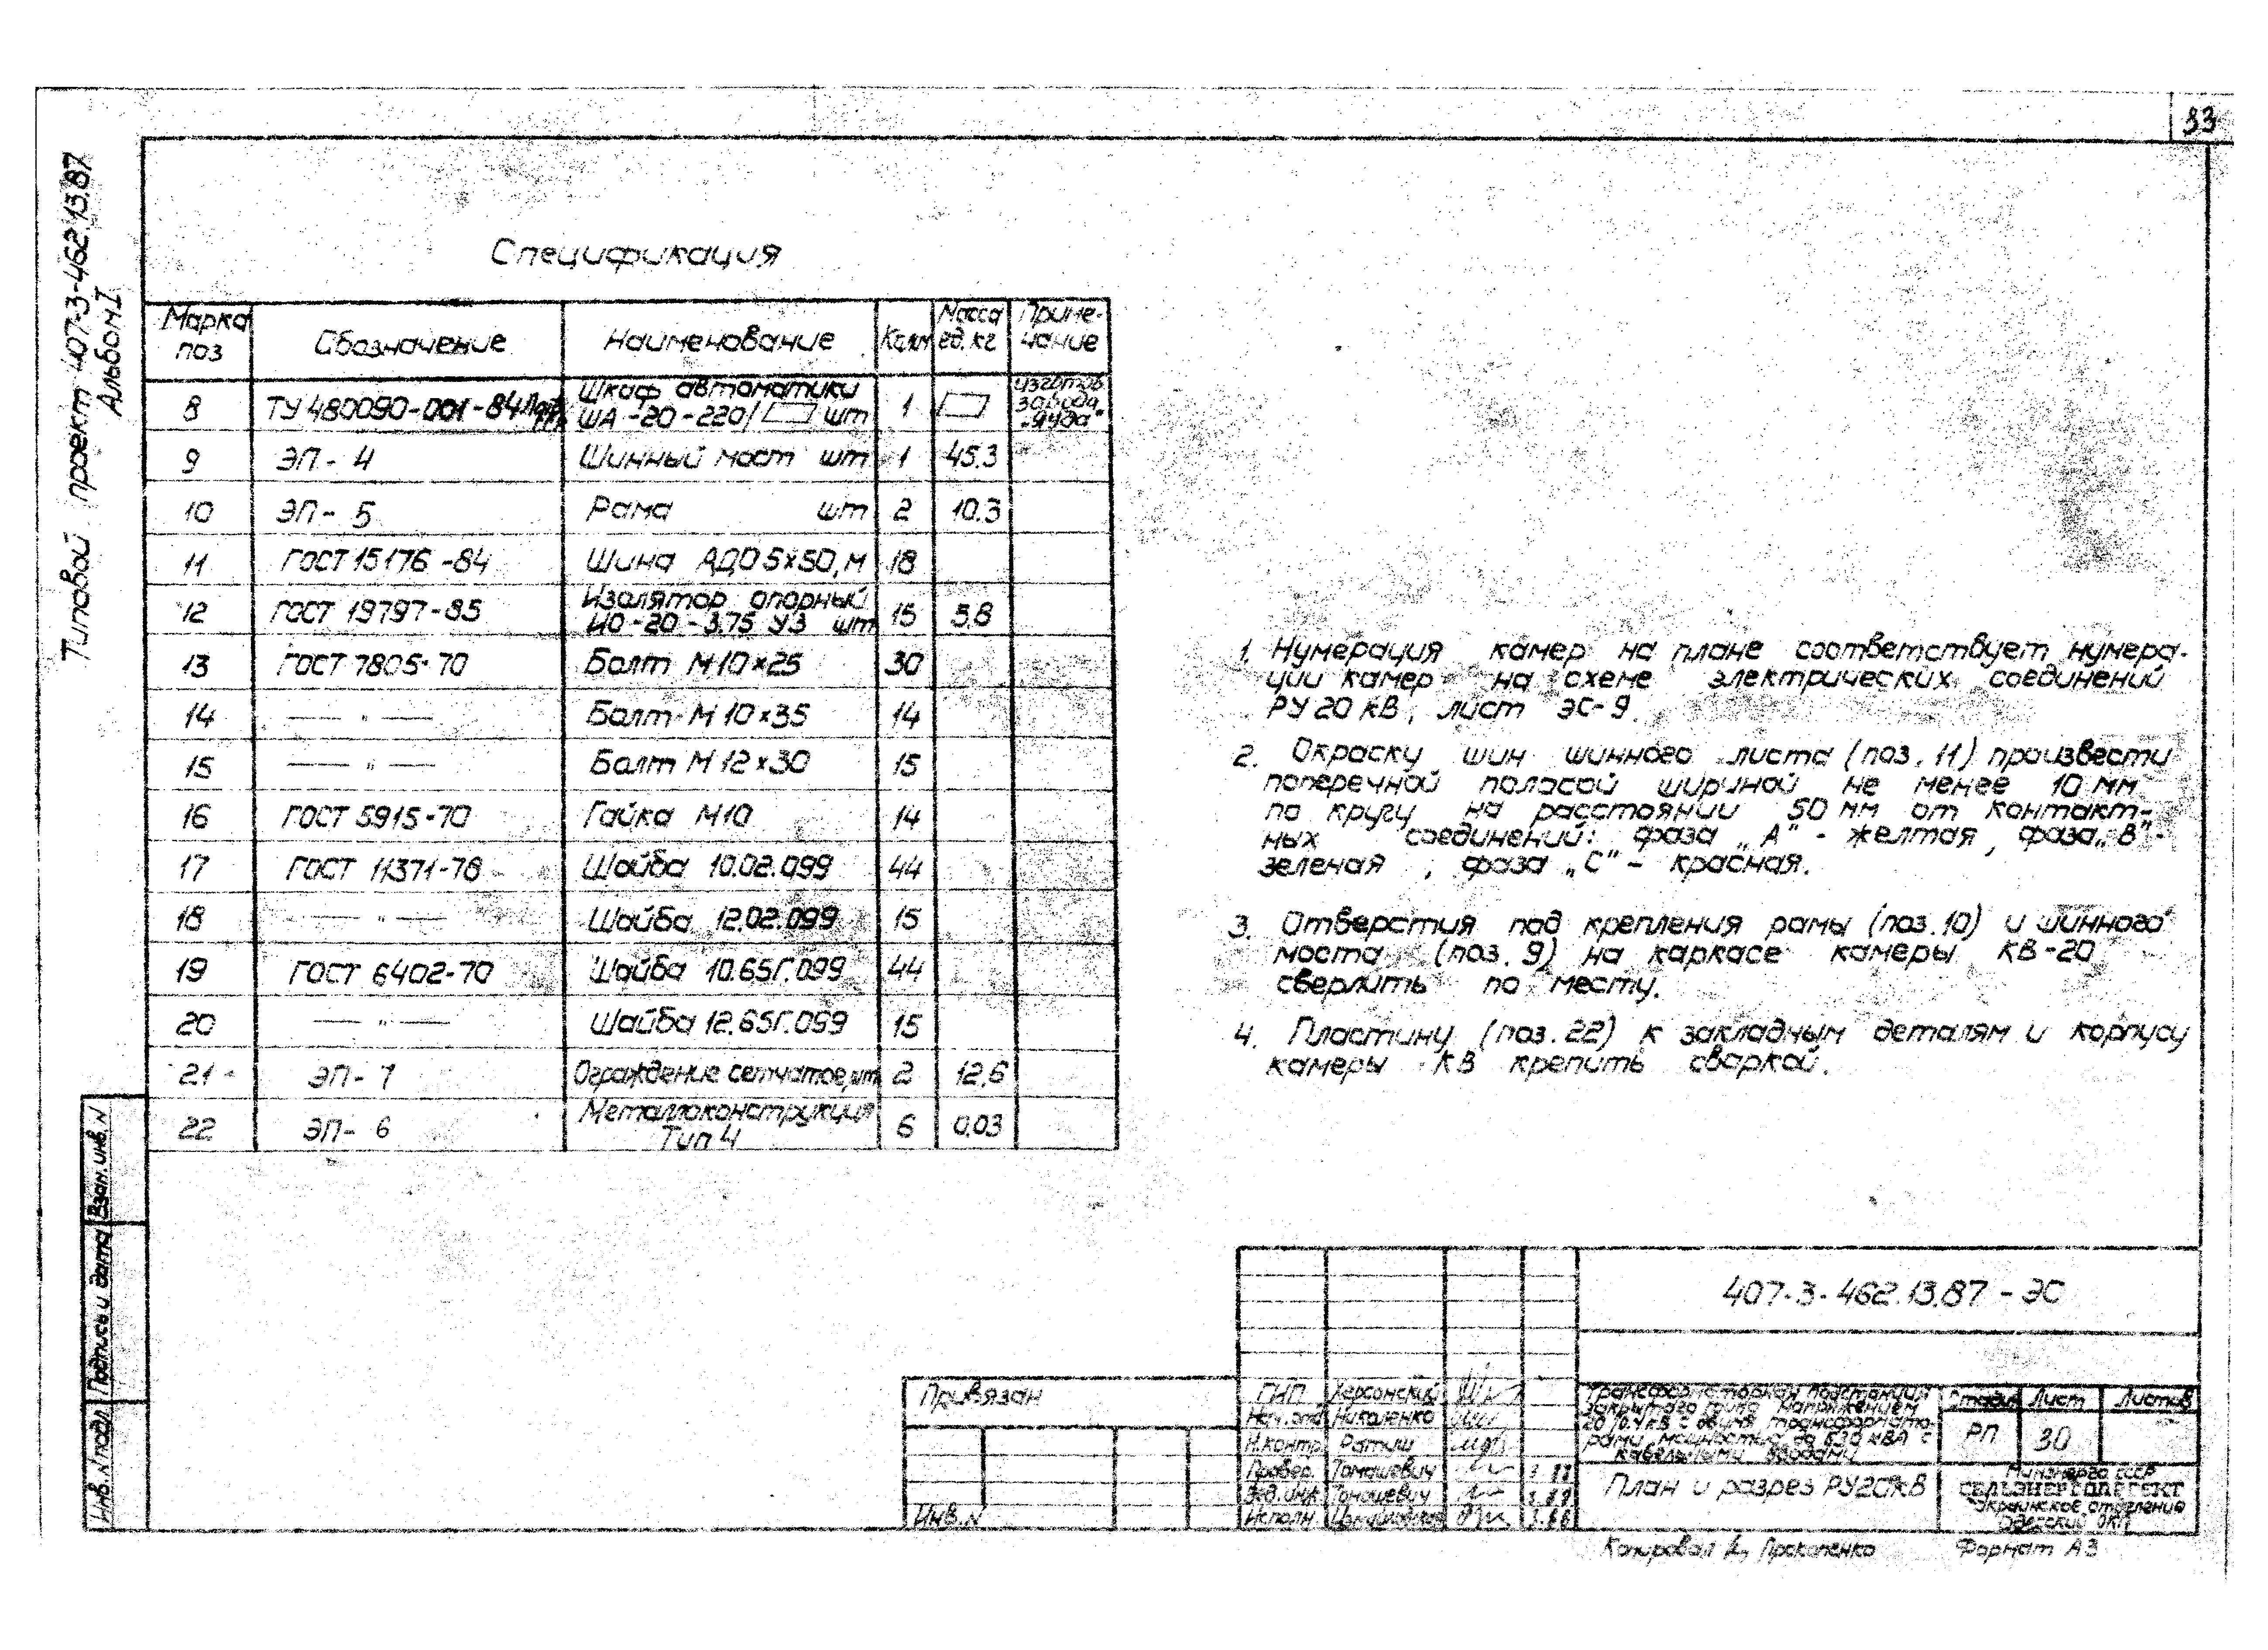 33
Типовой проект 407-3-462.13.87
Альбом I
Спецификация
Марка поз
Обозначение
Наименование
Кол.
Масса ед. кг
Приме-
чание
8 ТУ 480090-001-84 Шкаф автоматики ША-20-220/ шт 1 изготов. завода
9 ЭП-4 Шинный мост шт 1 45.3
10 ЭП-5 Рама шт 2 10.3
11 ГОСТ 15176-84 Шина АДО 5х50, м 18
12 ГОСТ 19797-85 Изолятор опорный ИО-20-3.75 У3 шт 15 5,8
13 ГОСТ 7805-70 Болт М10×25 30
14 —— " —— Болт М10×35 14
15 —— " —— Болт М12×30 15
16 ГОСТ 5915-70 Гайка М10 14
17 ГОСТ 11371-78 Шайба 10.02.099 44
18 —— " —— Шайба 12.02.099 15
19 ГОСТ 6402-70 Шайба 10.65Г.099 44
20 —— " —— Шайба 12.65Г.099 15
21 ЭП-7 Ограждение сетчатое, шт 2 12,6
22 ЭП-6 Металлоконструкция Тип 4 6 0,03
1. Нумерация камер на плане соответствует нумера-
ции камер на схеме электрических соединений
РУ 20 кВ, лист ЭС-9.
2. Окраску шин шинного листа (поз. 11) произвести
поперечной полосой шириной не менее 10 мм
по кругу на расстоянии 50 мм от контакт-
ных соединений: фаза „А" - желтая, фаза „В"-
зеленая, фаза „С" - красная.
3. Отверстия под крепления рамы (поз. 10) и шинного
моста (поз. 9) на каркасе камеры КВ-20
сверлить по месту.
4. Пластину (поз. 22) к закладным деталям и корпусу
камеры КВ крепить сваркой.
Взам. инв. N
Подпись и дата
Инв. N подл
Привязан
Инв. N
407-3-462.13.87 - ЭС
ГИП Херсонский
Нач. отд Николенко
Н.контр. Ратиш
Провер. Томашевич
Вед. инж Томашевич
Исполн.
Трансформаторная подстанция
закрытого типа напряжением
20/0,4 кВ с двумя трансформато-
рами мощностью до 630 кВА с
кабельными вводами
Стадия Лист Листов
РП 30
План и разрез РУ 20 кВ
Минэнерго СССР
СЕЛЬЭНЕРГОПРОЕКТ
Украинское отделение
Одесский ОКП
Копировал Прокопенко
Формат А3